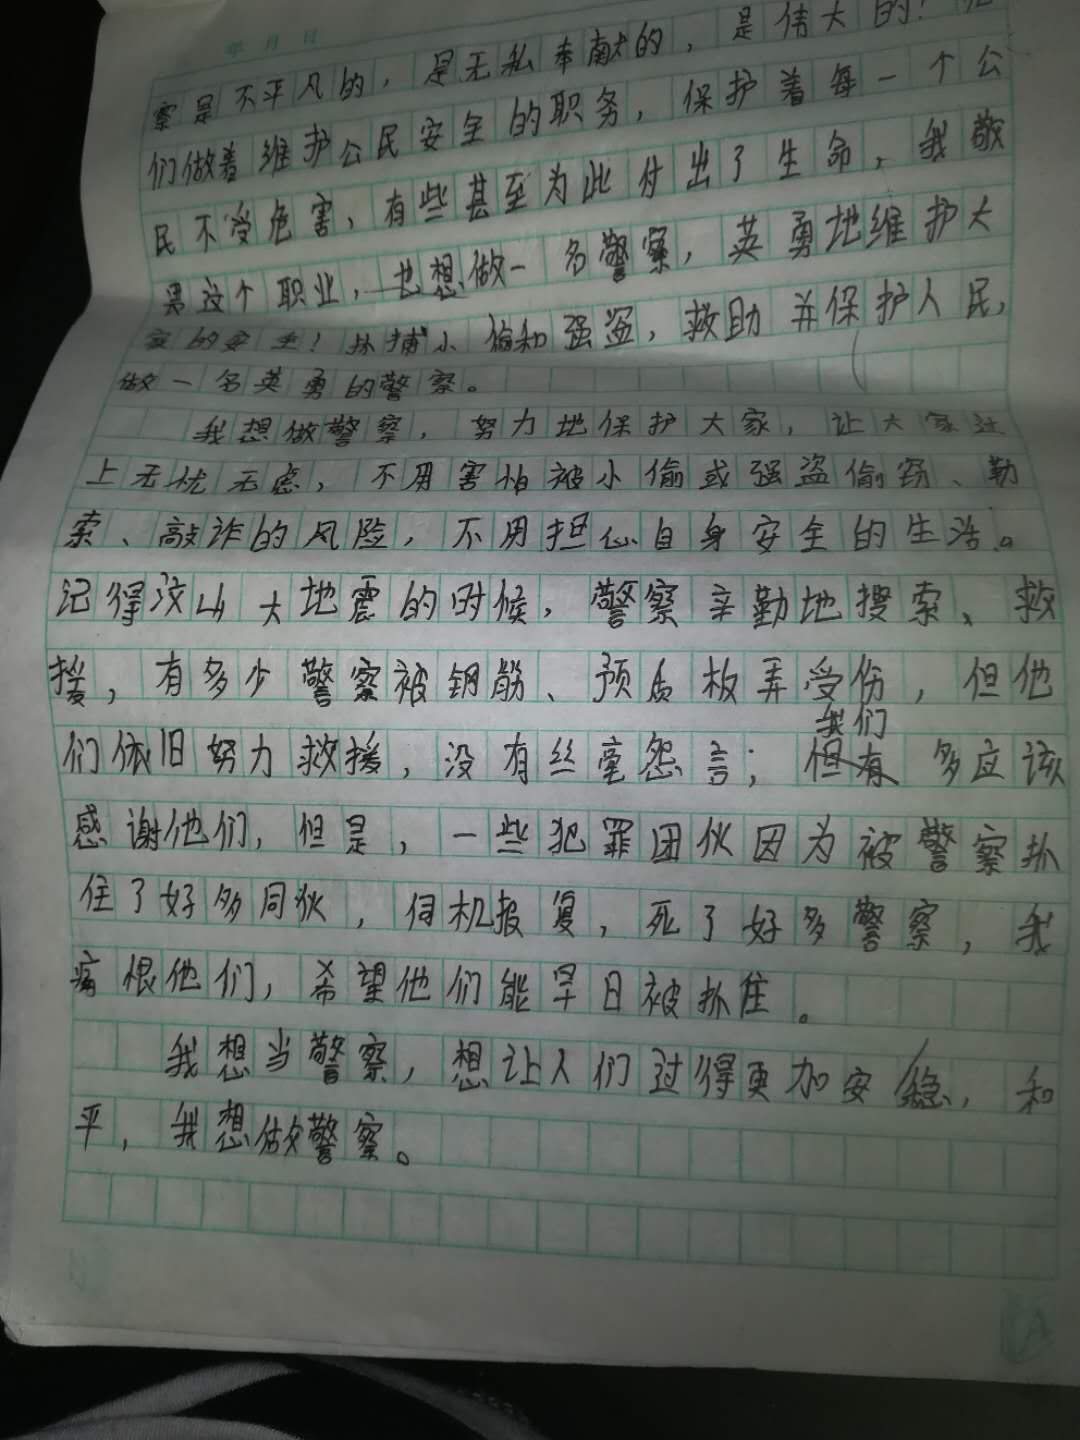 年 月 日
察是不平凡的，是无私奉献的，是伟大的！
们做着维护公民安全的职务，保护着每一个公
民不受危害，有些甚至为此付出了生命，我敬
畏这个职业，也想做一名警察，英勇地维护大
家的安全！抓捕小偷和强盗，救助并保护人民，
做一名英勇的警察。
我想做警察，努力地保护大家，让大家过
上无忧无虑，不用害怕被小偷或强盗偷窃、勒
索、敲诈的风险，不用担心自身安全的生活。
记得汶山大地震的时候，警察辛勤地搜索、救
援，有多少警察被钢筋、预质板弄受伤，但他
们依旧努力救援，没有丝毫怨言；我们多应该
感谢他们，但是，一些犯罪团伙因为被警察抓
住了好多同伙，伺机报复，死了好多警察，我
痛恨他们，希望他们能早日被抓住。
我想当警察，想让人们过得更加安稳，和
平，我想做警察。